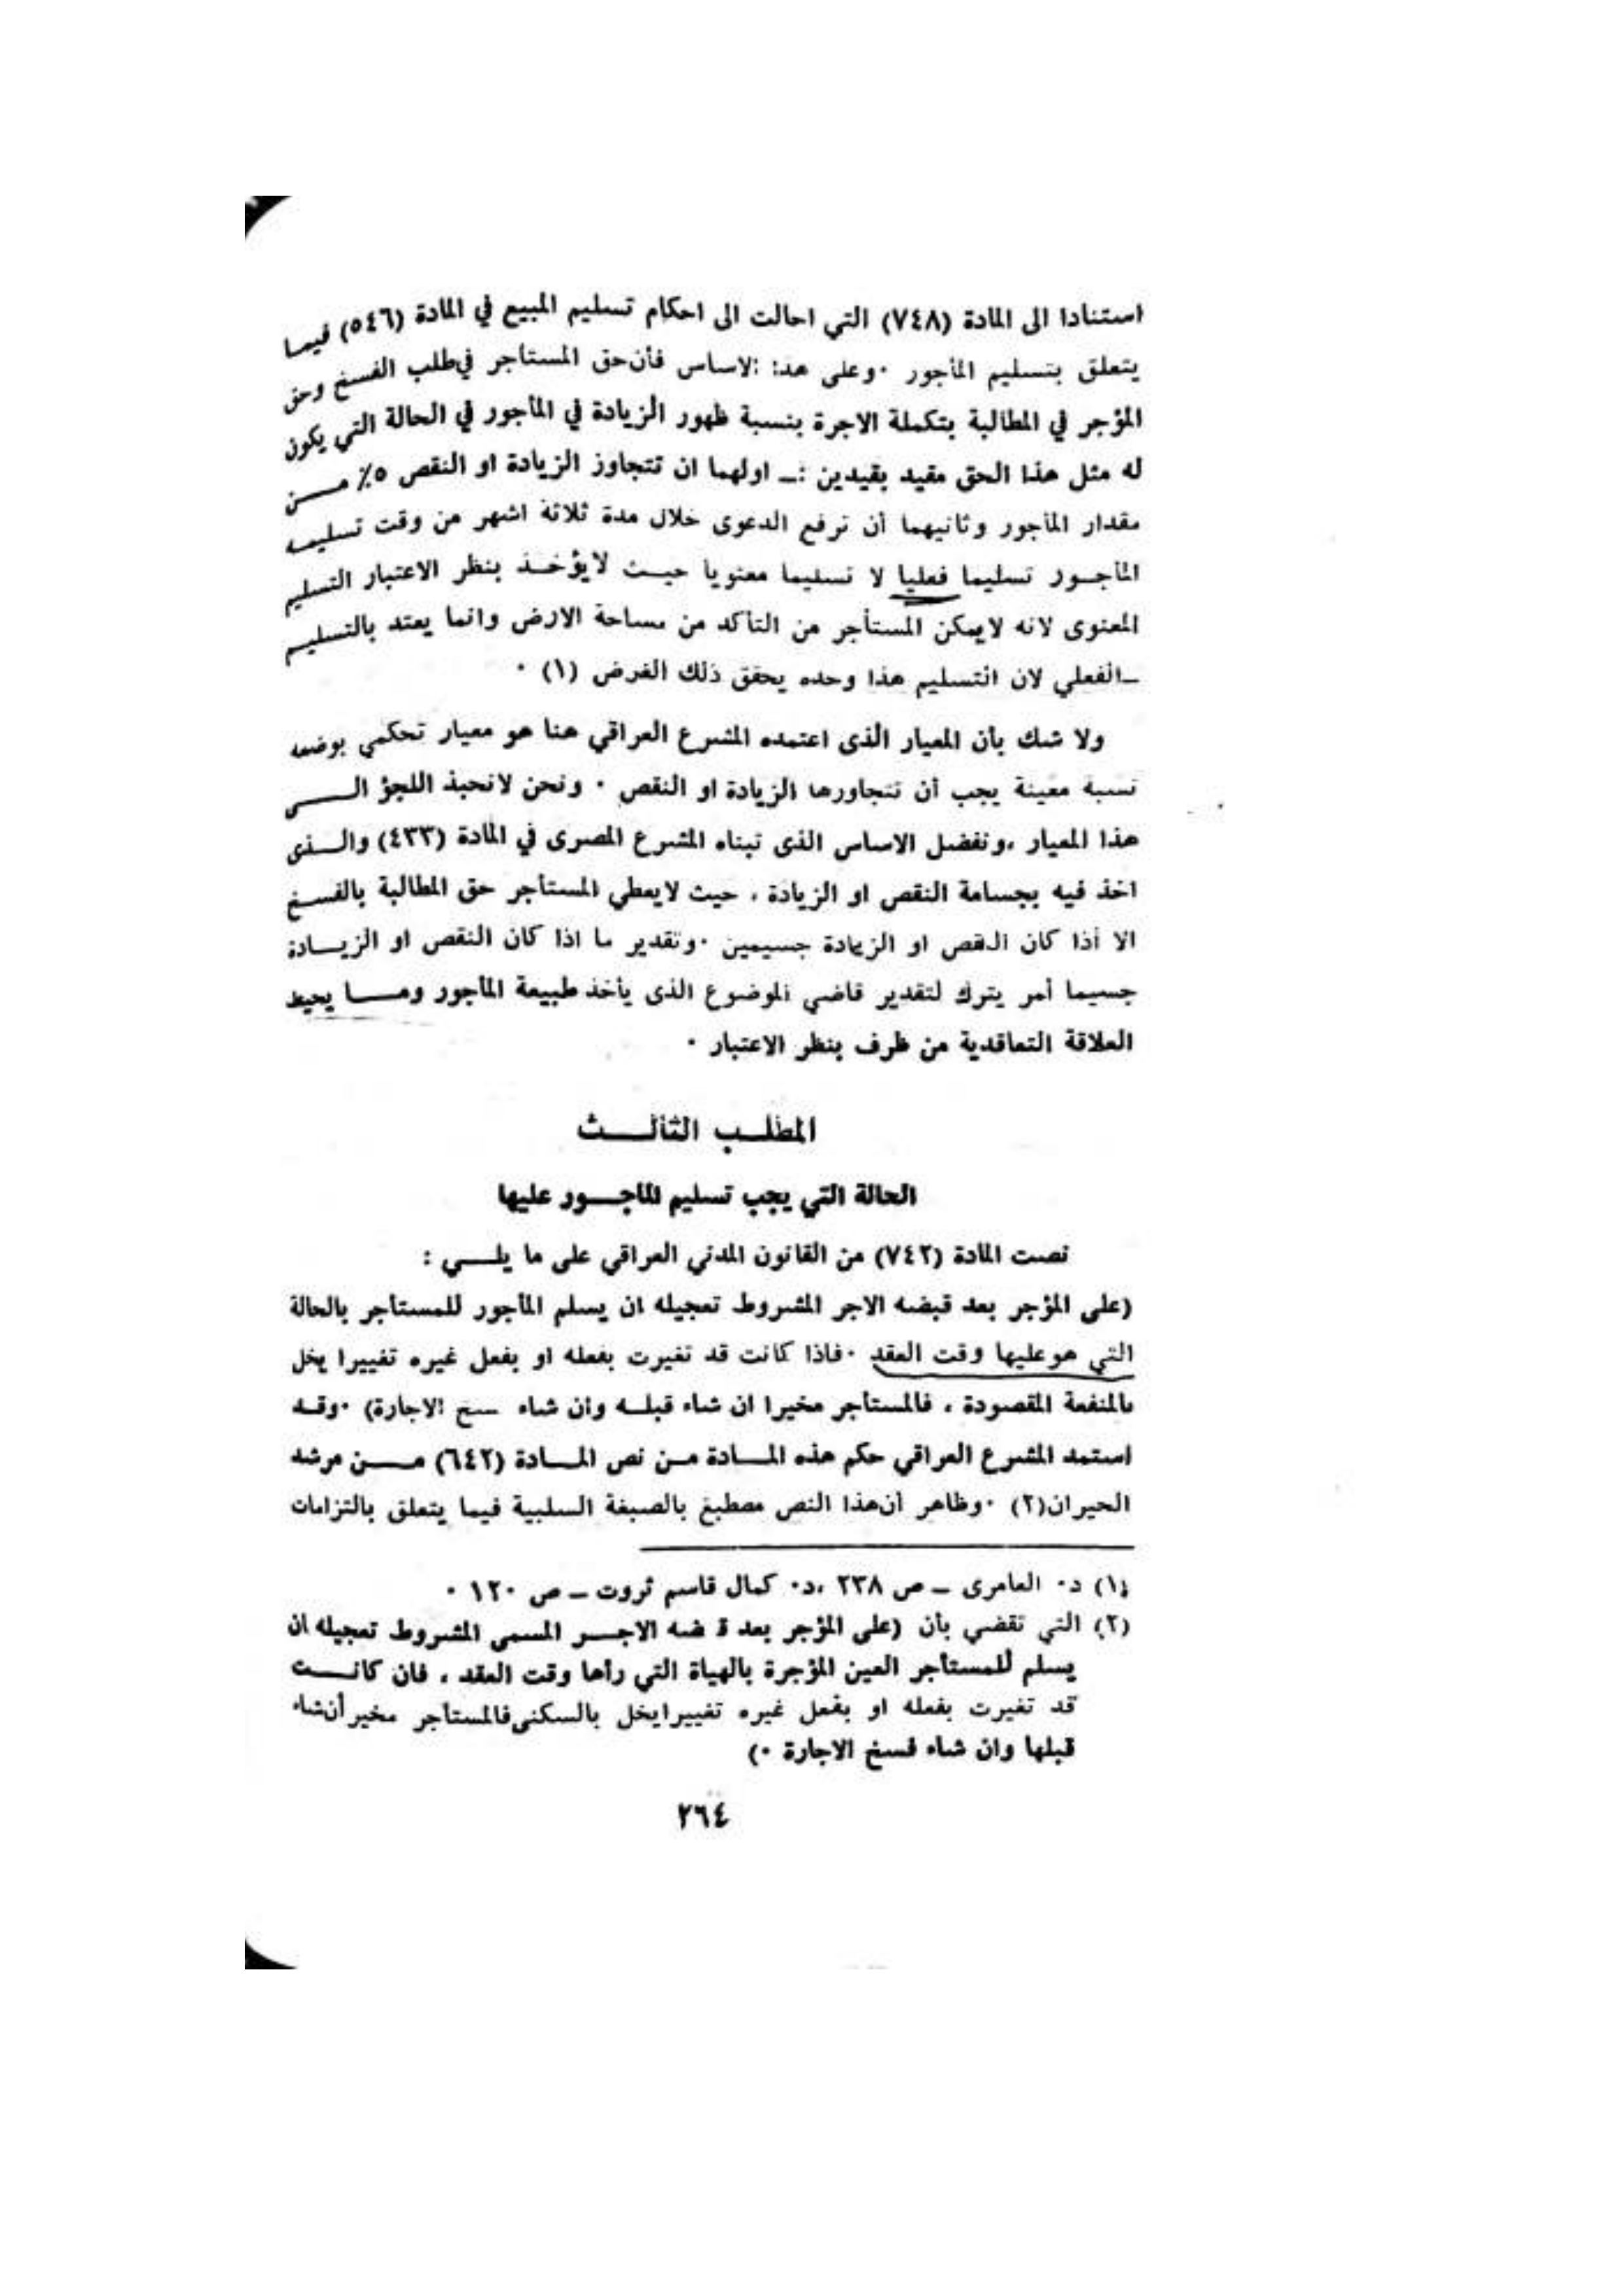 استنادا الى المادة (٧٤٨) التي احالت الى احكام تسليم المبيع في المادة (٥٤٦) فيما
يتعلق بتسليم المأجور ٠وعلى هذا الاساس فأن حق المستاجر في طلب الفسخ وحق
المؤجر في المطالبة بتكملة الاجرة بنسبة ظهور الزيادة في المأجور في الحالة التي يكون
له مثل هذا الحق مقيد بقيدين :ــ اولهما ان تتجاوز الزيادة او النقص ٥٪ مــــن
مقدار المأجور وثانيهما أن ترفع الدعوى خلال مدة ثلاثة اشهر من وقت تسليمه
المأجــور تسليما فعليا لا تسليما معنويا حيــث لايؤخــذ بنظر الاعتبار التسليم
المعنوى لانه لايمكن المستأجر من التأكد من مساحة الارض وانما يعتد بالتسليم
ــالفعلي لان التسليم هذا وحده يحقق ذلك الغرض (١) ٠
ولا شك بأن المعيار الذى اعتمده المشرع العراقي هنا هو معيار تحكمي بوضعه
نسبة معينة يجب أن تتجاورها الزيادة او النقص ٠ ونحن لانحبذ اللجؤ الــــى
هذا المعيار ،ونفضل الاساس الذى تبناه المشرع المصرى في المادة (٤٣٣) والــذى
اخذ فيه بجسامة النقص او الزيادة ، حيث لايعطي المستأجر حق المطالبة بالفســخ
الا أذا كان النقص او الزيادة جسيمين ٠وتقدير ما اذا كان النقص او الزيــادة
جسيما أمر يترك لتقدير قاضي الموضوع الذى يأخذ طبيعة المأجور ومــــا يحيط
العلاقة التعاقدية من ظرف بنظر الاعتبار ٠
المطلــب الثالــــث
الحالة التي يجب تسليم المأجــــور عليها
نصت المادة (٧٤٢) من القانون المدني العراقي على ما يلــــي :
(على المؤجر بعد قبضه الاجر المشروط تعجيله ان يسلم المأجور للمستأجر بالحالة
التي هو عليها وقت العقد ٠فاذا كانت قد تغيرت بفعله او بفعل غيره تغييرا يخل
بالمنفعة المقصودة ، فالمستأجر مخيرا ان شاء قبلــه وان شاء سخ الاجارة) ٠وقــد
استمد المشرع العراقي حكم هذه المــادة مــن نص المــادة (٦٤٢) مــــن مرشد
الحيران(٢) ٠وظاهر أن هذا النص مصطبغ بالصبغة السلبية فيما يتعلق بالتزامات
(١) د٠ العامرى ــ ص ٢٣٨ ،د٠ كمال قاسم ثروت ــ ص ١٢٠ ٠
(٢) التي تقضي بأن (على المؤجر بعد ق ضه الاجــــر المسمى المشروط تعجيله ان
يسلم للمستأجر العين المؤجرة بالهياة التي رأها وقت العقد ، فان كانــــت
قد تغيرت بفعله او بفعل غيره تغييرا يخل بالسكنى فالمستأجر مخير أن شاء
قبلها وان شاء فسخ الاجارة ٠)
٢٦٤